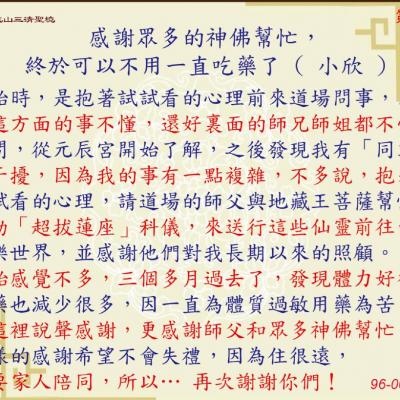 山三清聖境
感謝眾多的神佛幫忙，
終於可以不用一直吃藥了（小欣）
始時，是抱著試試看的心理前來道場問事，
這方面的事不懂，還好裏面的師兄師姐都不
問，從元辰宮開始了解，之後發現我有「同
干擾，因為我的事有一點複雜，不多說，抱
試看的心理，請道場的師父與地藏王菩薩幫
助「超拔蓮座」科儀，來送行這些仙靈前往
樂世界，並感謝他們對我長期以來的照顧。
始感覺不多，三個多月過去了，發現體力好
藥也減少很多，因一直為體質過敏用藥為苦
這裡說聲感謝，更感謝師父和眾多神佛幫忙
樣的感謝希望不會失禮，因為住很遠，
要家人陪同，所以… 再次謝謝你們！
96-0